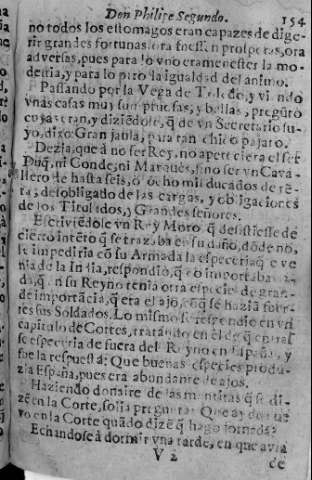 Don Philipe Segundo. 154
no todos los estomagos eran capazes de dige-
rir grandes fortunas, ora fuessen prosperas, ora
adversas, pues para lo vno era menester la mo-
destia, y para lo otro la igualdad del animo.
Passando por la Vega de Toledo, y viendo
vnas casas muy sumptuosas, y bellas, preguntò
cuyas eran, y diziēdole, q̃ de vn Secretario su-
yo, dixo: Gran jaula, para tan chico pajaro.
Dezia, que à no ser Rey, no apeteciera el ser
Duq̃, ni Conde, ni Marquès, sino ser vn Cava-
llero de hasta seis, ò ocho mil ducados de rē-
ta, desobligado de las cargas, y obligaciones
de los Titulados, y Grandes señores.
Escriviēdole vn Rey Moro, q̃ desistiesse de
cierto intēto q̃ se trazaba en su daño, dōde no,
le impediria cō su Armada la especeria q̃ le ve
nia de la India, respondiò, q̃
da, q̃ en su Reyno tenia otra especie de gran-
de importācia, q̃ era el ajo, cō q̃ se hazia fuer-
tes sus Soldados. Lo mismo se respondiò en vn
capitulo de Cortes, tratādo en èl de q̃ entrasse
especeria de fuera del Reyno en España, y
fue la respuesta: Que buenas especies produ-
zia España, pues era abundante de ajos.
Haziendo donaire de las mentiras q̃ se di-
zē en la Corte, solia preguntar: Que ay de nue
vo en la Corte quādo dizē q̃ hago jornada?
Echandose à dormir vna tarde, en que avia
V 2 de